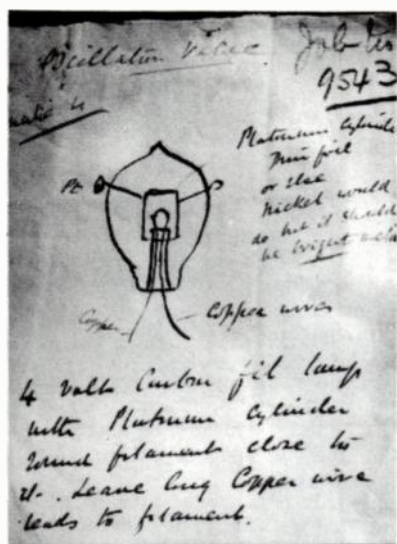 Oscillation Valve.
Job No
9543
Platinum Cylinder
thin foil
or else
Nickel would
do but it should
be bright metal
Pt
Copper
Copper wires
4 Volts Carbon fil lamp
with Platinum Cylinder
round filament close to
it. Leave long Copper wire
leads to filament.